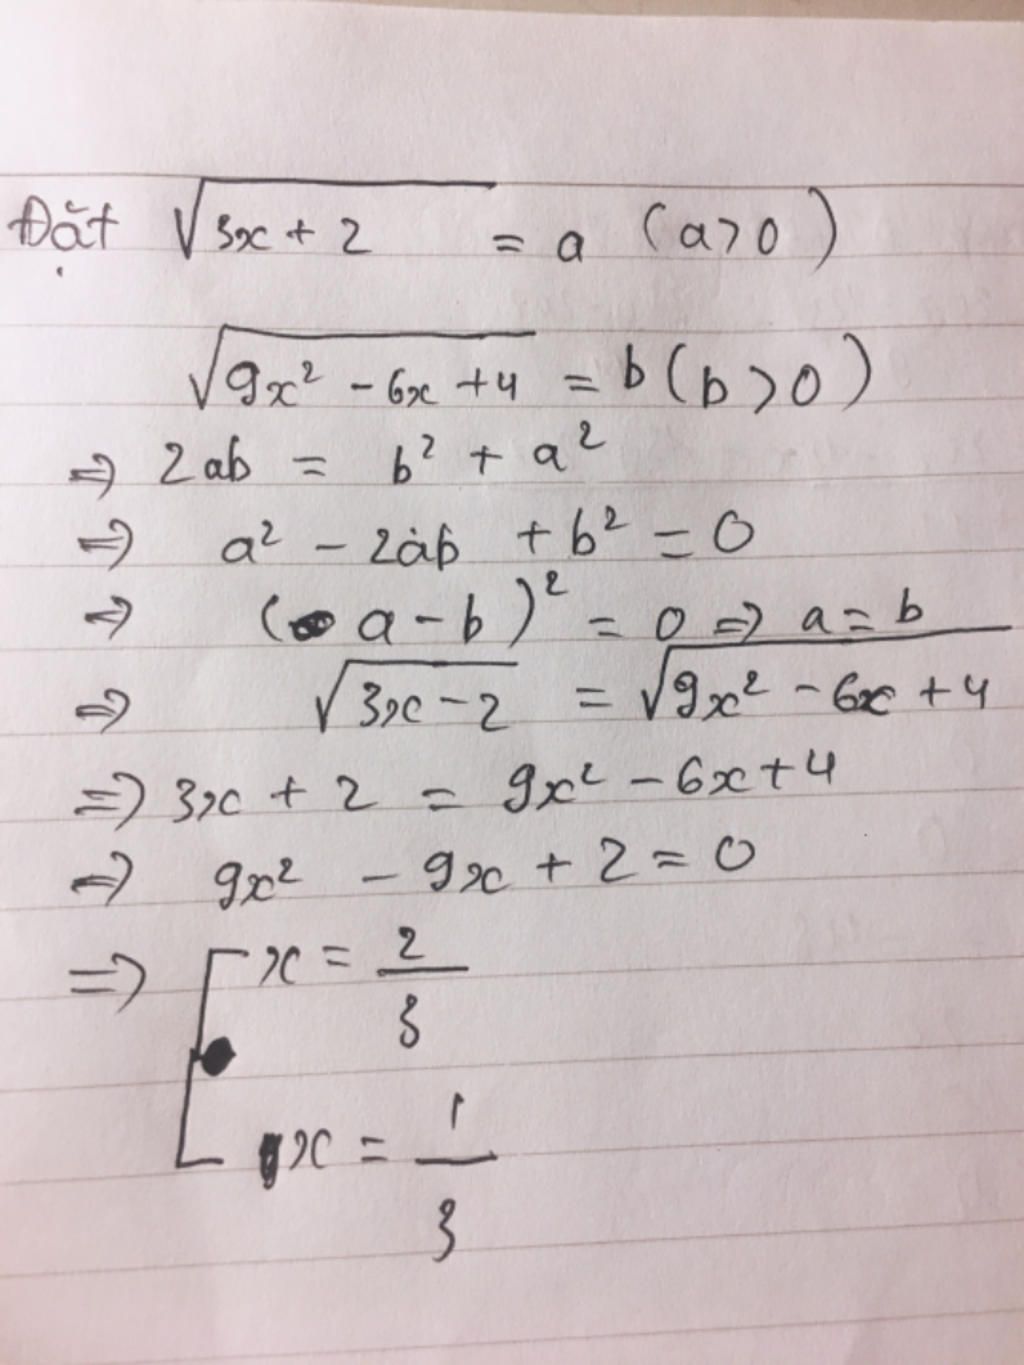 Đặt √(3x + 2) = a (a > 0)
√(9x² - 6x + 4) = b (b > 0)
=> 2ab = b² + a²
=> a² - 2ab + b² = 0
=> (a - b)² = 0 => a = b
=> √(3x - 2) = √(9x² - 6x + 4)
=> 3x + 2 = 9x² - 6x + 4
=> 9x² - 9x + 2 = 0
=> [ x = 2/3
x = 1/3